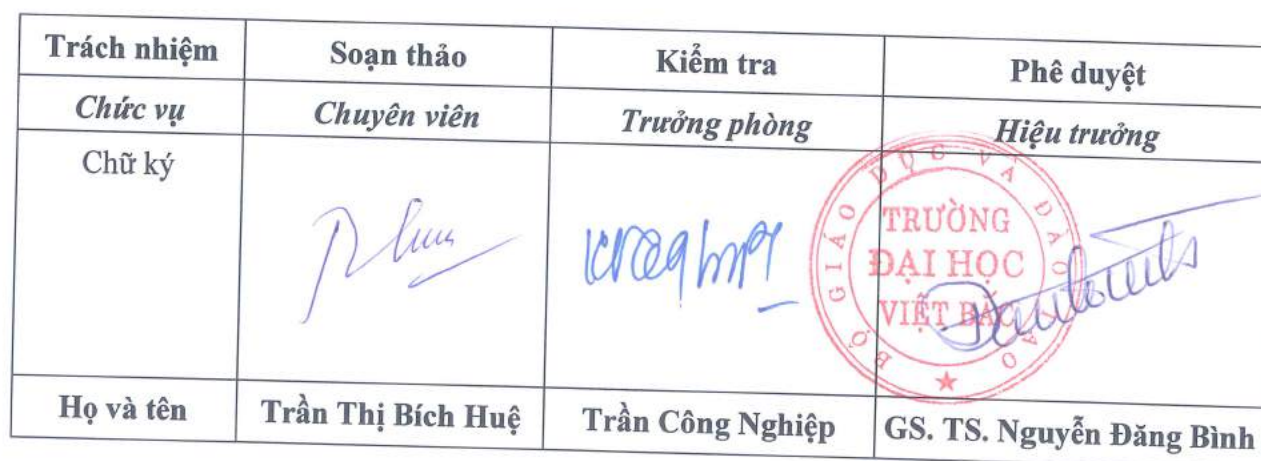 Trách nhiệm Soạn thảo Kiểm tra Phê duyệt
Chức vụ Chuyên viên Trưởng phòng Hiệu trưởng
Chữ ký
BỘ GIÁO DỤC VÀ ĐÀO TẠO
TRƯỜNG
ĐẠI HỌC
VIỆT BẮC
Họ và tên Trần Thị Bích Huệ Trần Công Nghiệp GS. TS. Nguyễn Đăng Bình